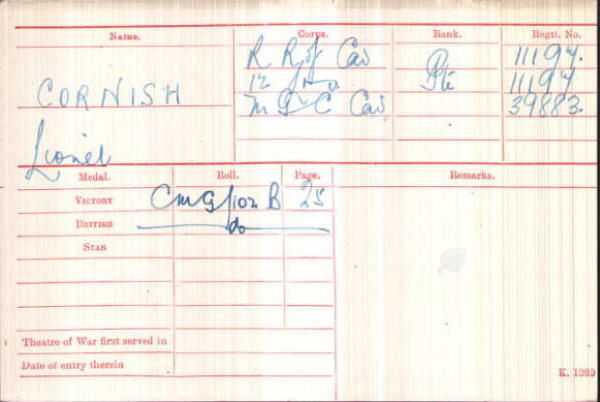 Name. Corps. Rank. Regtl. No.
R R of Cav Pte 11197.
12 11197
CORNISH M G C Cav 39883.
Lionel
Medal. Roll. Page. Remarks.
VICTORY CMG/102 B 25
BRITISH do
STAR
Theatre of War first served in
Date of entry therein
K. 1380